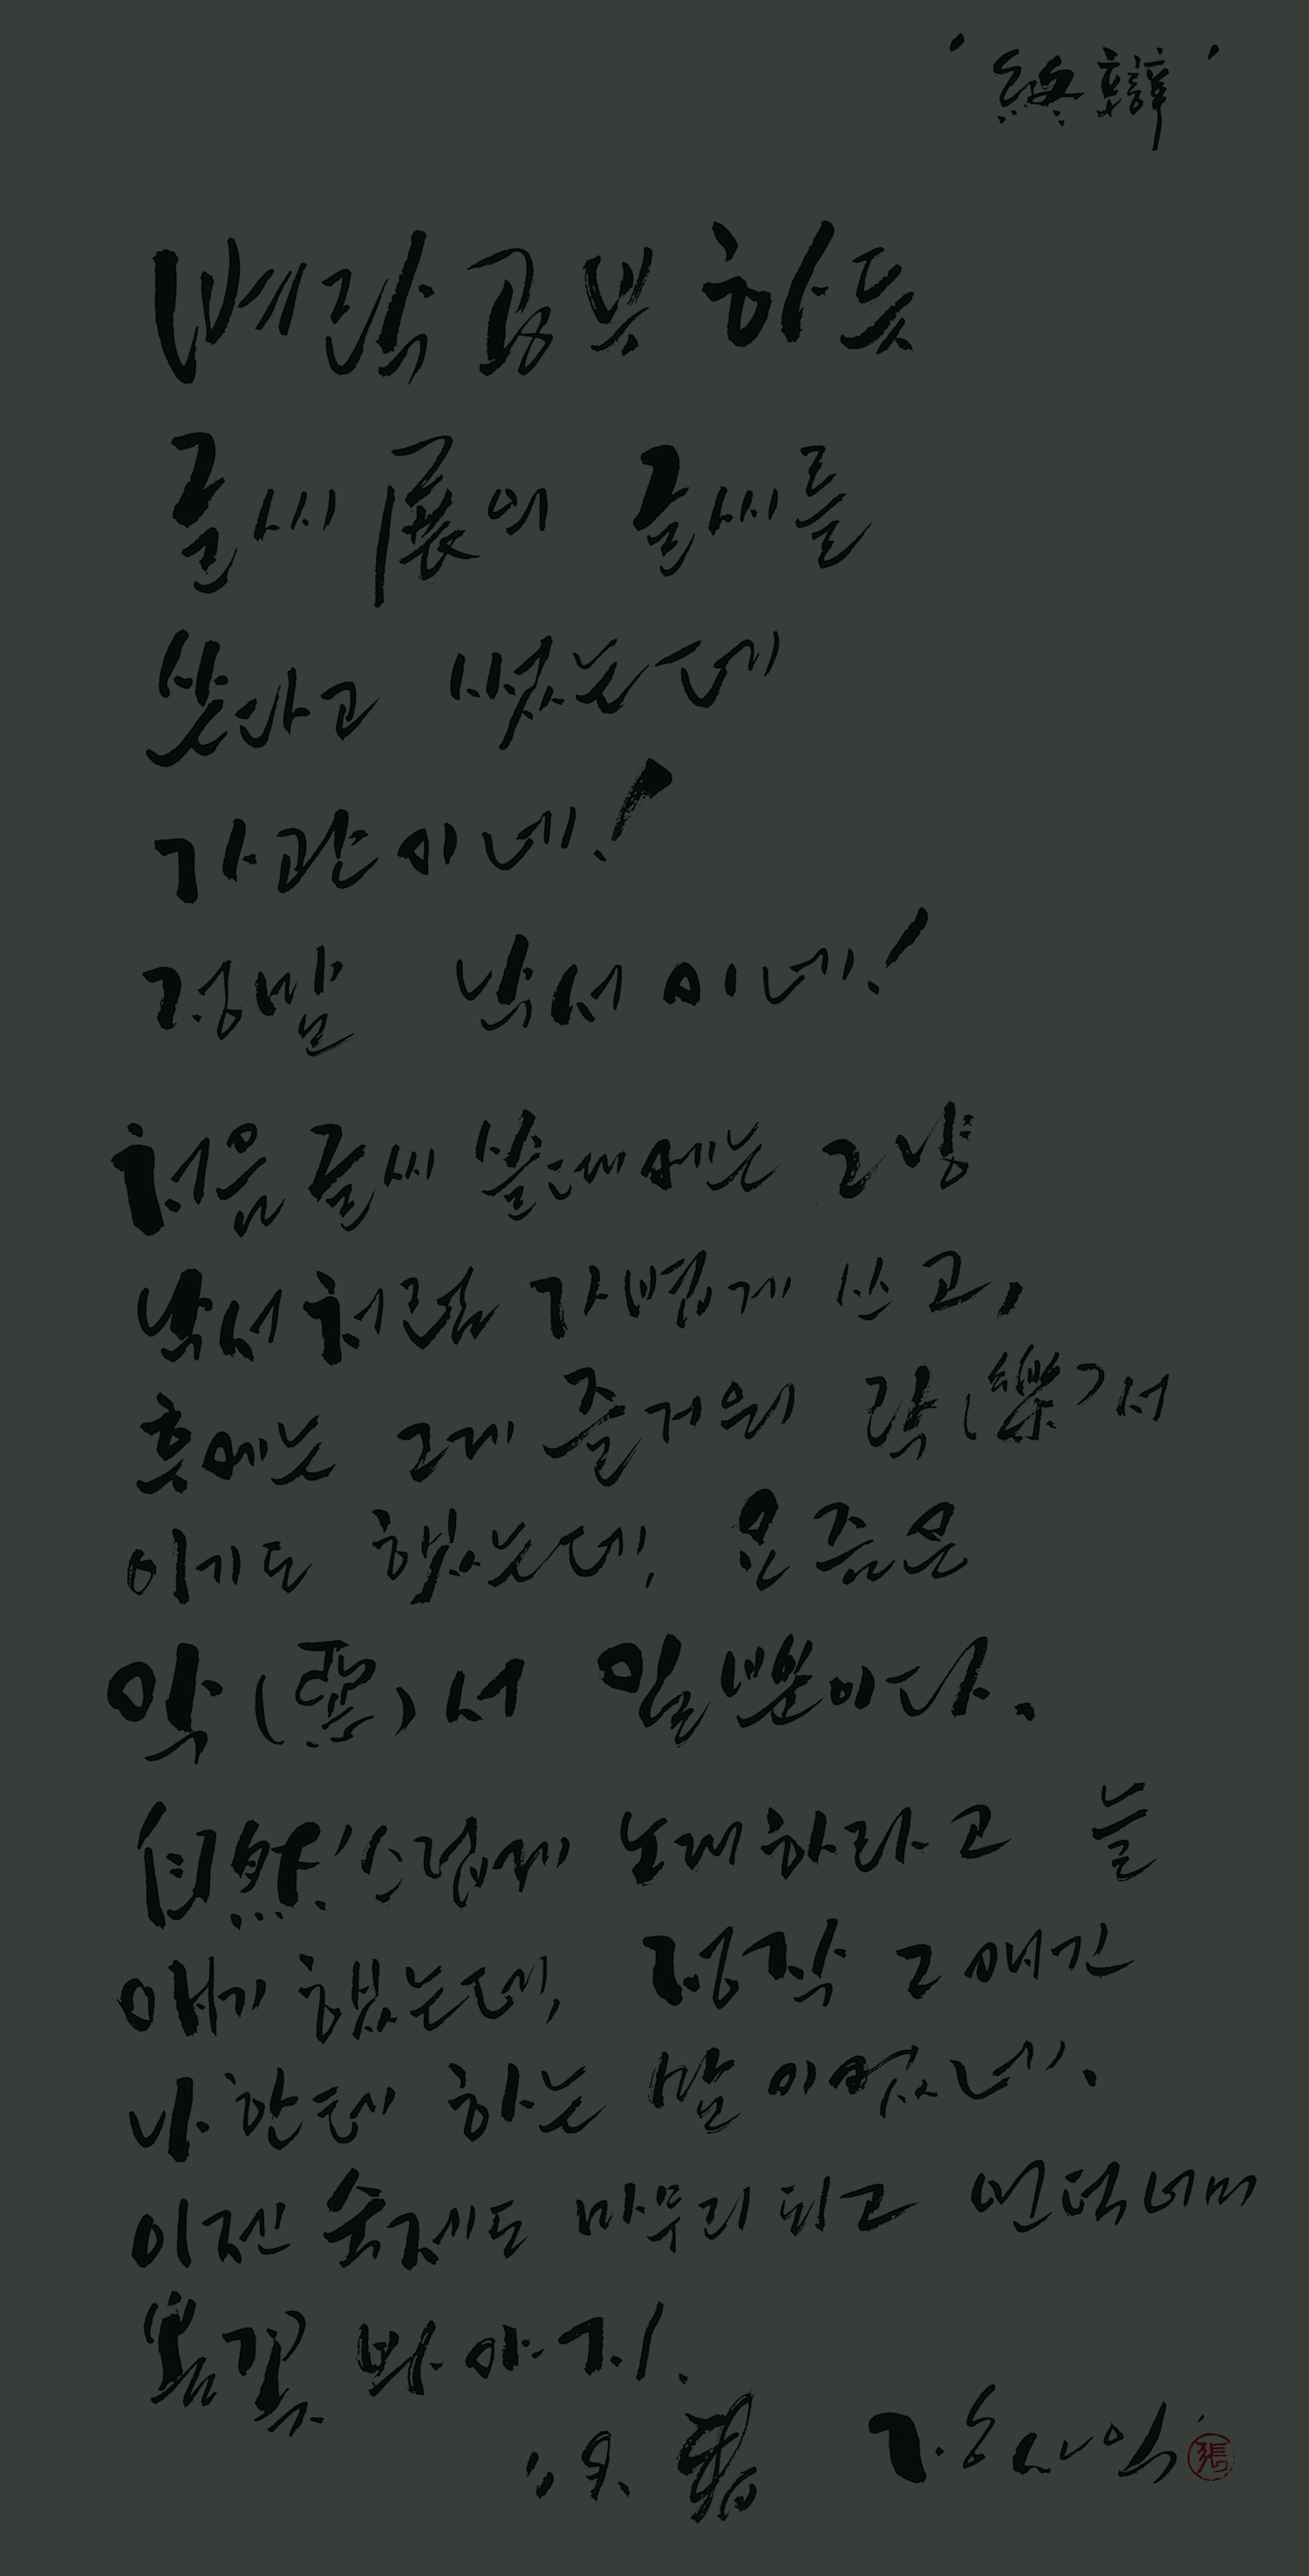 '終辯'
벼락공부 하듯
글씨展의 글씨를
쓴다고 썼는데
가관이네!
정말 낙서이네!
처음 글씨 쓸때에는 그냥
낙서처럼 가볍게 쓰고,
후에는 그게 즐거워 락(樂)서
이기도 했는데, 요즘은
악(惡)서 일뿐이다.
自然스럽게 노래하라고 늘
얘기 했는데, 정작 그 얘긴
나한테 하는 말이었네.
이젠 숙제도 마무리되고 언덕너머
봄꽃 봐야지.
장사익 張